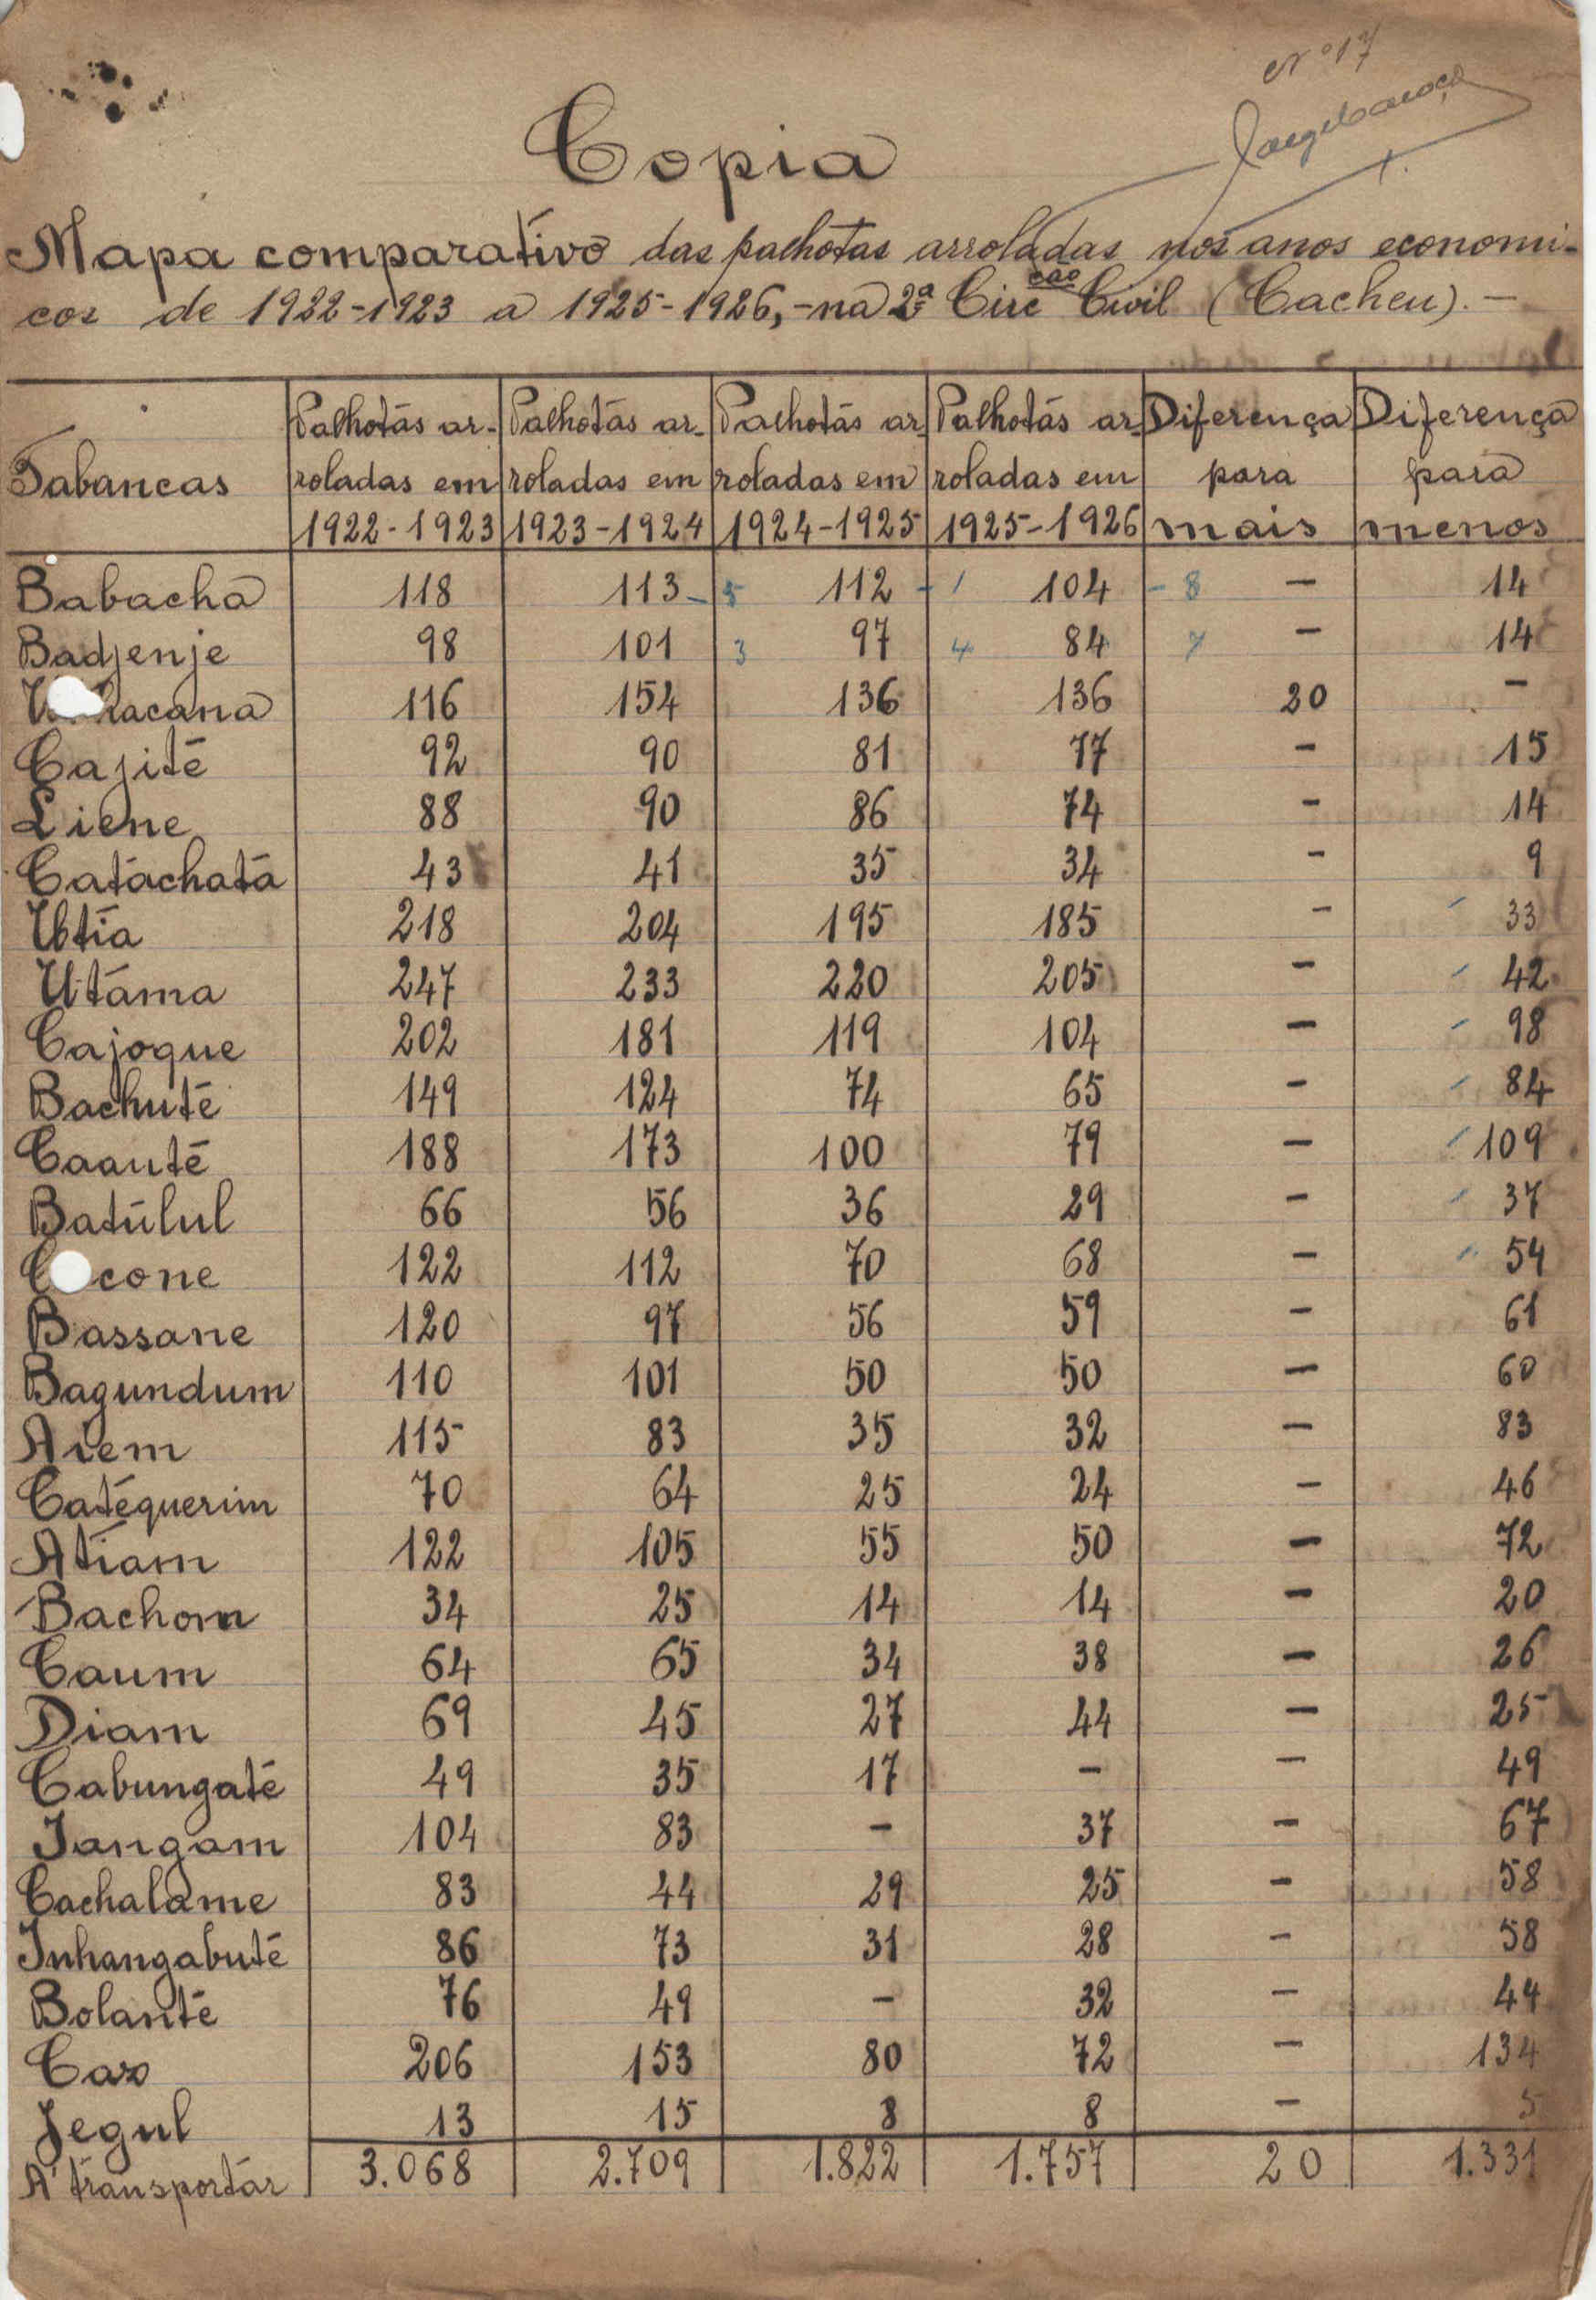 Nº 17
Copia
Mapa comparativo das palhotas arroladas nos anos economi-
cos de 1922-1923 a 1925-1926,-na 2ª Circ.cao Civil (Cacheu).-
Tabancas | Palhotas ar-roladas em 1922-1923 | Palhotas ar-roladas em 1923-1924 | Palhotas ar-roladas em 1924-1925 | Palhotas ar-roladas em 1925-1926 | Diferença para mais | Diferença para menos
Babacha 118 113 - 5 112 - 1 104 - 8 - 14
Badjenje 98 101 3 97 4 84 7 - 14
116 154 136 136 20 -
Cajité 92 90 81 77 - 15
Liene 88 90 86 74 - 14
Catáchatá 43 41 35 34 - 9
Ubtia 218 204 195 185 - 33
Utáma 247 233 220 205 - 42
Cajoque 202 181 119 104 - 98
Bachuté 149 124 74 65 - 84
Caauté 188 173 100 79 - 109
Batúlul 66 56 36 29 - 37
cone 122 112 70 68 - 54
Bassane 120 97 56 59 - 61
Bagundum 110 101 50 50 - 60
Aiem 115 83 35 32 - 83
Catéquerim 70 64 25 24 - 46
Atiam 122 105 55 50 - 72
Bachom 34 25 14 14 - 20
Caum 64 65 34 38 - 26
Diam 69 45 27 44 - 25
Cabungaté 49 35 17 - - 49
Jangam 104 83 - 37 - 67
Cachalame 83 44 29 25 - 58
Inhangabuté 86 73 31 28 - 58
Bolanté 76 49 - 32 - 44
Caz 206 153 80 72 - 134
Jegul 13 15 8 8 - 5
A' transportár 3.068 2.709 1.822 1.757 20 1.331